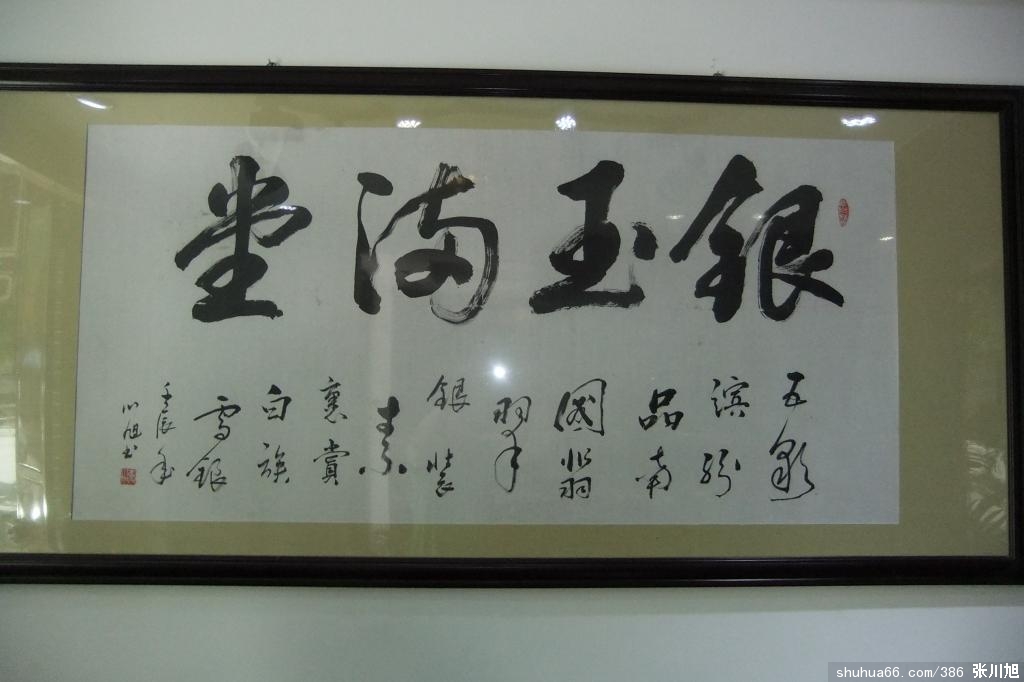 銀玉满堂
五彩
滨紛
品南
國翡
翠
銀裝
素
裹賞
白族
雪銀
壬辰年
川旭书
shuhua66.com/386 张川旭